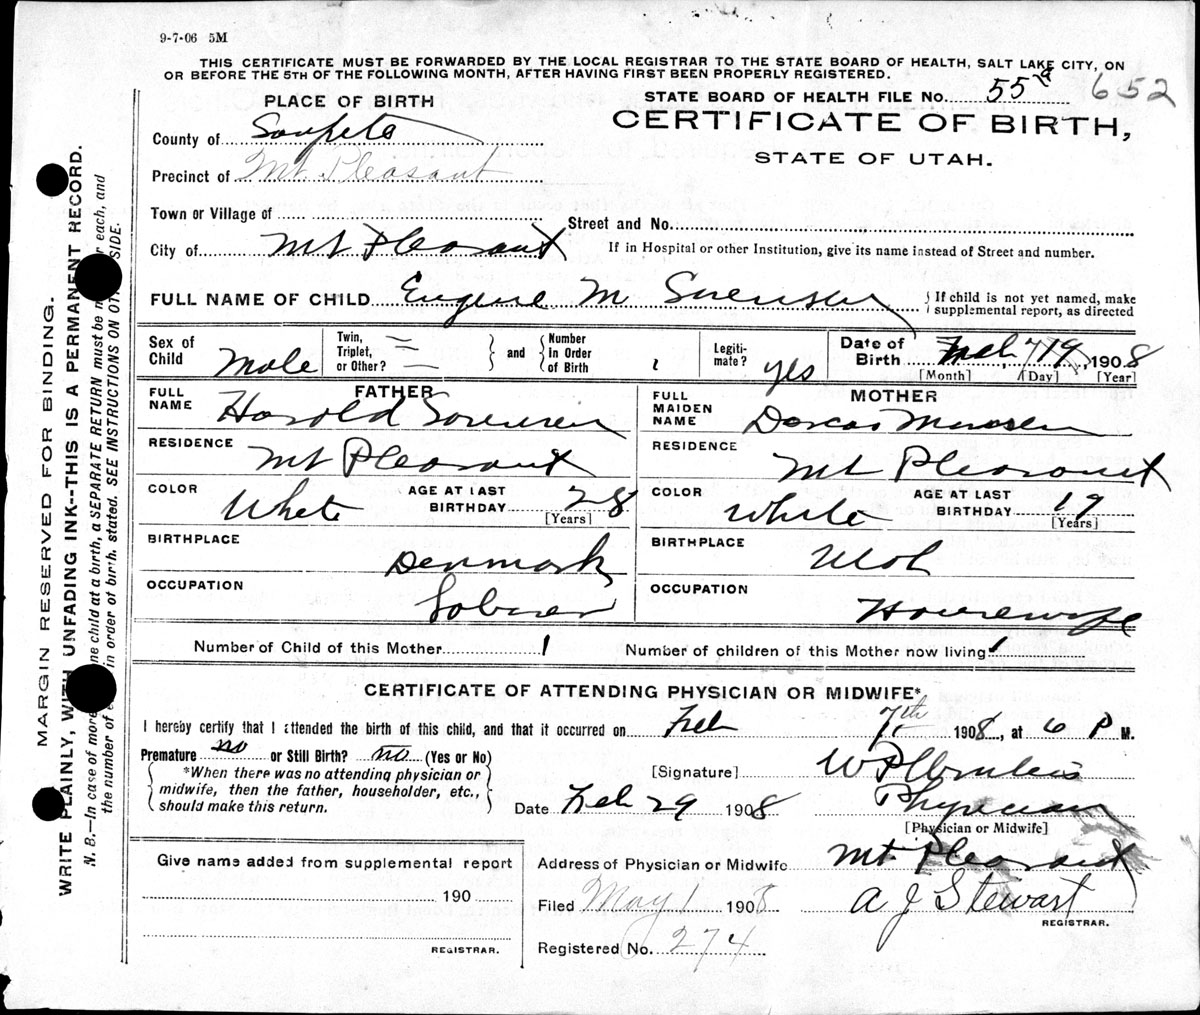 9-7-06 5M
THIS CERTIFICATE MUST BE FORWARDED BY THE LOCAL REGISTRAR TO THE STATE BOARD OF HEALTH, SALT LAKE CITY, ON
OR BEFORE THE 5TH OF THE FOLLOWING MONTH, AFTER HAVING FIRST BEEN PROPERLY REGISTERED.
PLACE OF BIRTH
STATE BOARD OF HEALTH FILE No. 55 a 652
CERTIFICATE OF BIRTH,
STATE OF UTAH.
County of Sanpete
Precinct of Mt Pleasant
Town or Village of
Street and No.
City of Mt Pleasant
If in Hospital or other Institution, give its name instead of Street and number.
FULL NAME OF CHILD Eugene M Sorensen
If child is not yet named, make
supplemental report, as directed
Sex of Child Male
Twin, Triplet, or Other?
and
Number In Order of Birth
Legiti-mate? yes
Date of Birth Feb 7 19, 1908
[Month] [Day] [Year]
FATHER
FULL NAME Harold Sorensen
MOTHER
FULL MAIDEN NAME Dorcas
RESIDENCE Mt Pleasant
RESIDENCE Mt Pleasant
COLOR White
AGE AT LAST BIRTHDAY 28
[Years]
COLOR White
AGE AT LAST BIRTHDAY 19
[Years]
BIRTHPLACE Denmark
BIRTHPLACE Utah
OCCUPATION Laborer
OCCUPATION Housewife
Number of Child of this Mother 1
Number of children of this Mother now living 1
CERTIFICATE OF ATTENDING PHYSICIAN OR MIDWIFE*
I hereby certify that I attended the birth of this child, and that it occurred on Feb 7th 1908, at 6 P M.
Premature no or Still Birth? no (Yes or No)
*When there was no attending physician or
midwife, then the father, householder, etc.,
should make this return.
[Signature]
Date Feb 29 1908
Physician
[Physician or Midwife]
Give name added from supplemental report
190
REGISTRAR.
Address of Physician or Midwife Mt. Pleasant
Filed May 1 1908
A J Stewart
REGISTRAR.
Registered No. 274
MARGIN RESERVED FOR BINDING.
WRITE PLAINLY, WITH UNFADING INK--THIS IS A PERMANENT RECORD.
N. B.—In case of more one child at a birth, a SEPARATE RETURN must be m r each, and
the number of in order of birth, stated. SEE INSTRUCTIONS ON OT SIDE.